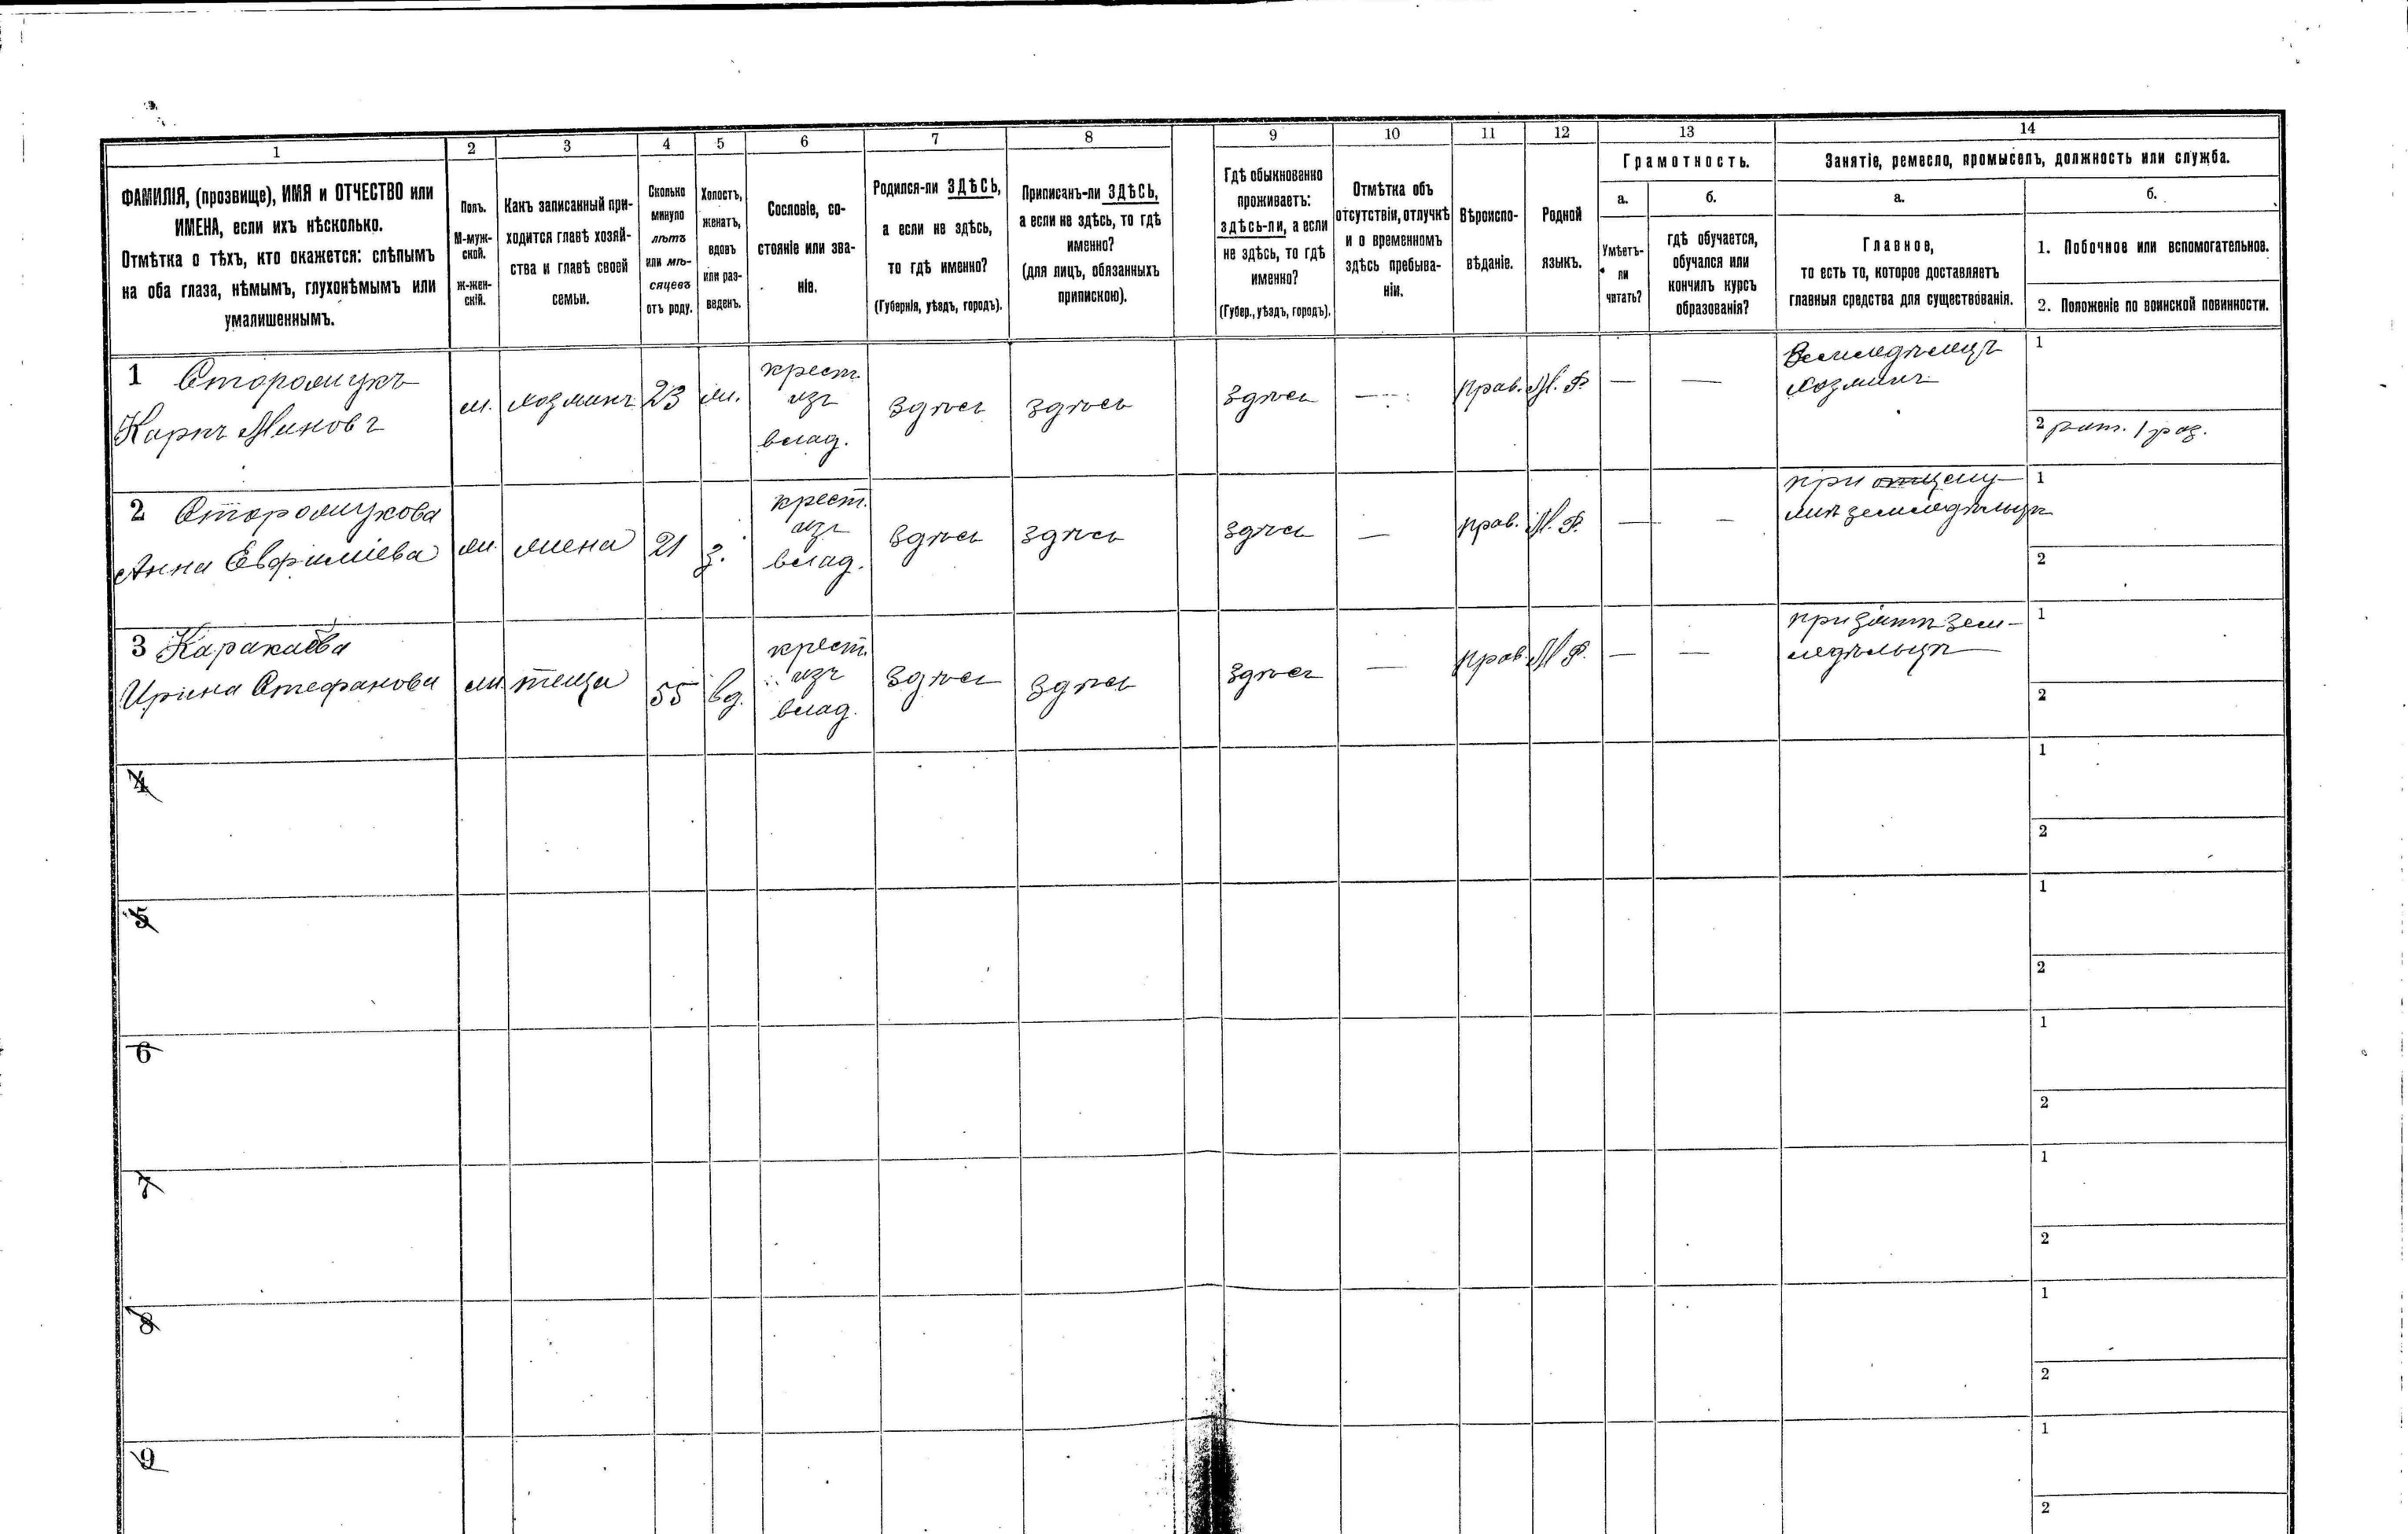 1 2 3 4 5 6 7 8 9 10 11 12 13 14
ФАМИЛІЯ, (прозвище), ИМЯ и ОТЧЕСТВО или
ИМЕНА, если ихъ нѣсколько.
Отмѣтка о тѣхъ, кто окажется: слѣпымъ
на оба глаза, нѣмымъ, глухонѣмымъ или
умалишеннымъ.
Полъ.
М-муж-
ской.
ж-жен-
скій.
Какъ записанный при-
ходится главѣ хозяй-
ства и главѣ своей
семьи.
Сколько
минуло
лѣтъ
или мѣ-
сяцевъ
отъ роду.
Холостъ,
женатъ,
вдовъ
или раз-
веденъ.
Сословіе, со-
стояніе или зва-
ніе.
Родился-ли ЗДѢСЬ,
а если не здѣсь,
то гдѣ именно?
(Губернія, уѣздъ, городъ).
Приписанъ-ли ЗДѢСЬ,
а если не здѣсь, то гдѣ
именно?
(для лицъ, обязанныхъ
припискою).
Гдѣ обыкновенно
проживаетъ:
здѣсь-ли, а если
не здѣсь, то гдѣ
именно?
(Губер., уѣздъ, городъ).
Отмѣтка объ
отсутствіи, отлучкѣ
и о временномъ
здѣсь пребыва-
ніи.
Вѣроиспо-
вѣданіе.
Родной
языкъ.
Грамотность.
а.
Умѣетъ-
ли
читать?
б.
гдѣ обучается,
обучался или
кончилъ курсъ
образованія?
Занятіе, ремесло, промыселъ, должность или служба.
а.
Главное,
то есть то, которое доставляетъ
главныя средства для существованія.
б.
1. Побочное или вспомогательное.
2. Положеніе по воинской повинности.
1
Карпъ Миновъ
23
крест.
изъ
влад.
здѣсь
здѣсь
здѣсь
—
прав.
— —
1
2 рат. 1 раз.
2
Анна Евфиміева
жена
21
з.
крест.
изъ
влад.
здѣсь
здѣсь
здѣсь
—
прав.
— —
1
2
3
Ирина Стефанова
теща
55
вд.
крест.
изъ
влад.
здѣсь
здѣсь
здѣсь
—
прав.
— —
при зятѣ зем-
ледѣльцѣ
1
2
4
1
2
5
1
2
6
1
2
7
1
2
8
1
2
9
1
2